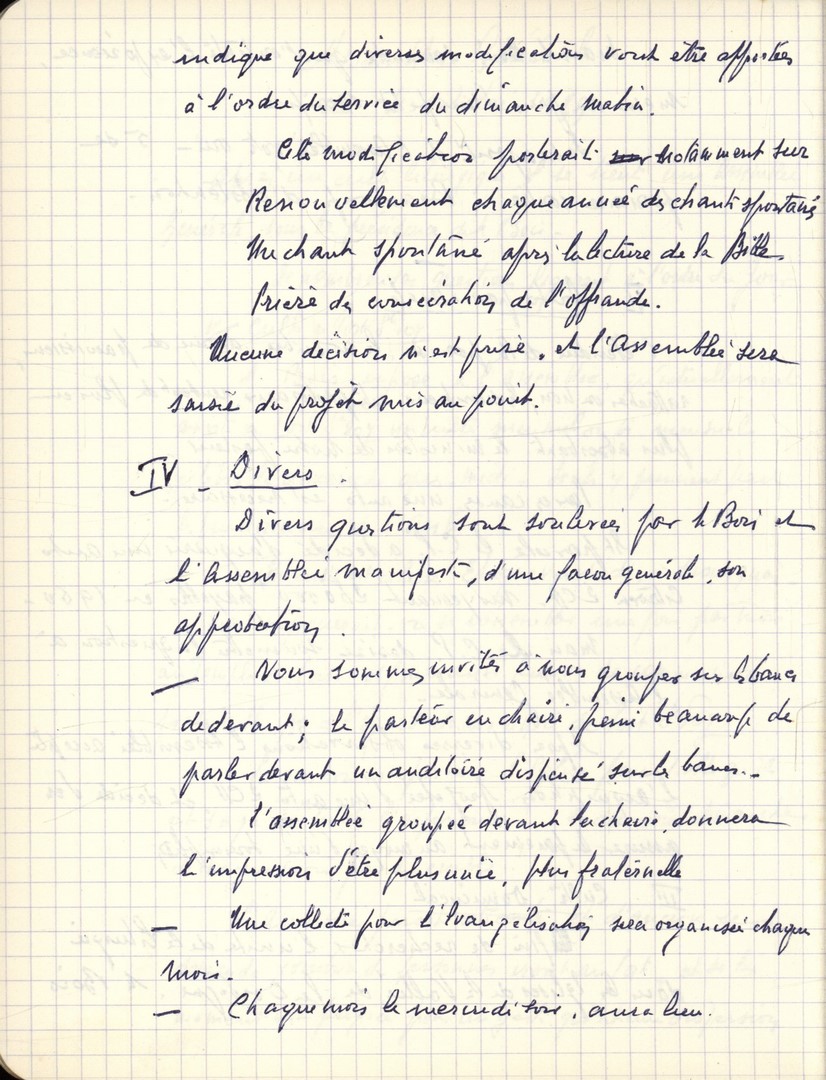 indique que diverses modifications vont être apportées
à l'ordre du service du dimanche matin.
Cette modification porterait notamment sur
Renouvellement chaque année des chants spontanés
Un chant spontané après la lecture de la Bible
Prière de consécration de l'offrande.
Aucune décision n'est prise, et l'Assemblée sera
saisie du projet mis au point.
IV - Divers.
Divers questions sont soulevées par le Bois et
l'Assemblée manifeste, d'une façon générale, son
approbation.
— Nous sommes invités à nous grouper sur les bancs
de devant; le pasteur en chaire, peine beaucoup de
parler devant un auditoire dispersé sur les bancs.-
L'assemblée groupée devant la chaire, donnera
l'impression d'être plus unie, plus fraternelle
— Une collecte pour l'Evangélisation sera organisée chaque
mois.
— Chaque mois le mercredi soir, aura lieu.